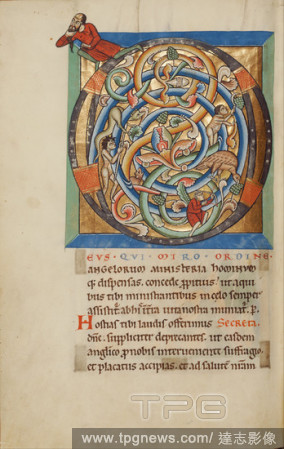 EVS · QVI · MIRO · ORDINE ·
ANGELORVM MINISTERIA hOMINVM
q; dispensas. concede ppitius. ut a qui
bus tibi ministrantibus in celo semper
assistit. ab his in terra uita nostra muniat. P.
Hostias tibi laudis offerimus Secreta
dne. suppliciter deprecantes. ut easdem
anglico pro nobis interueniente suffragio.
et placatus accipias. et ad salutem nram
TPG
www.tpgnews.com/達志影像